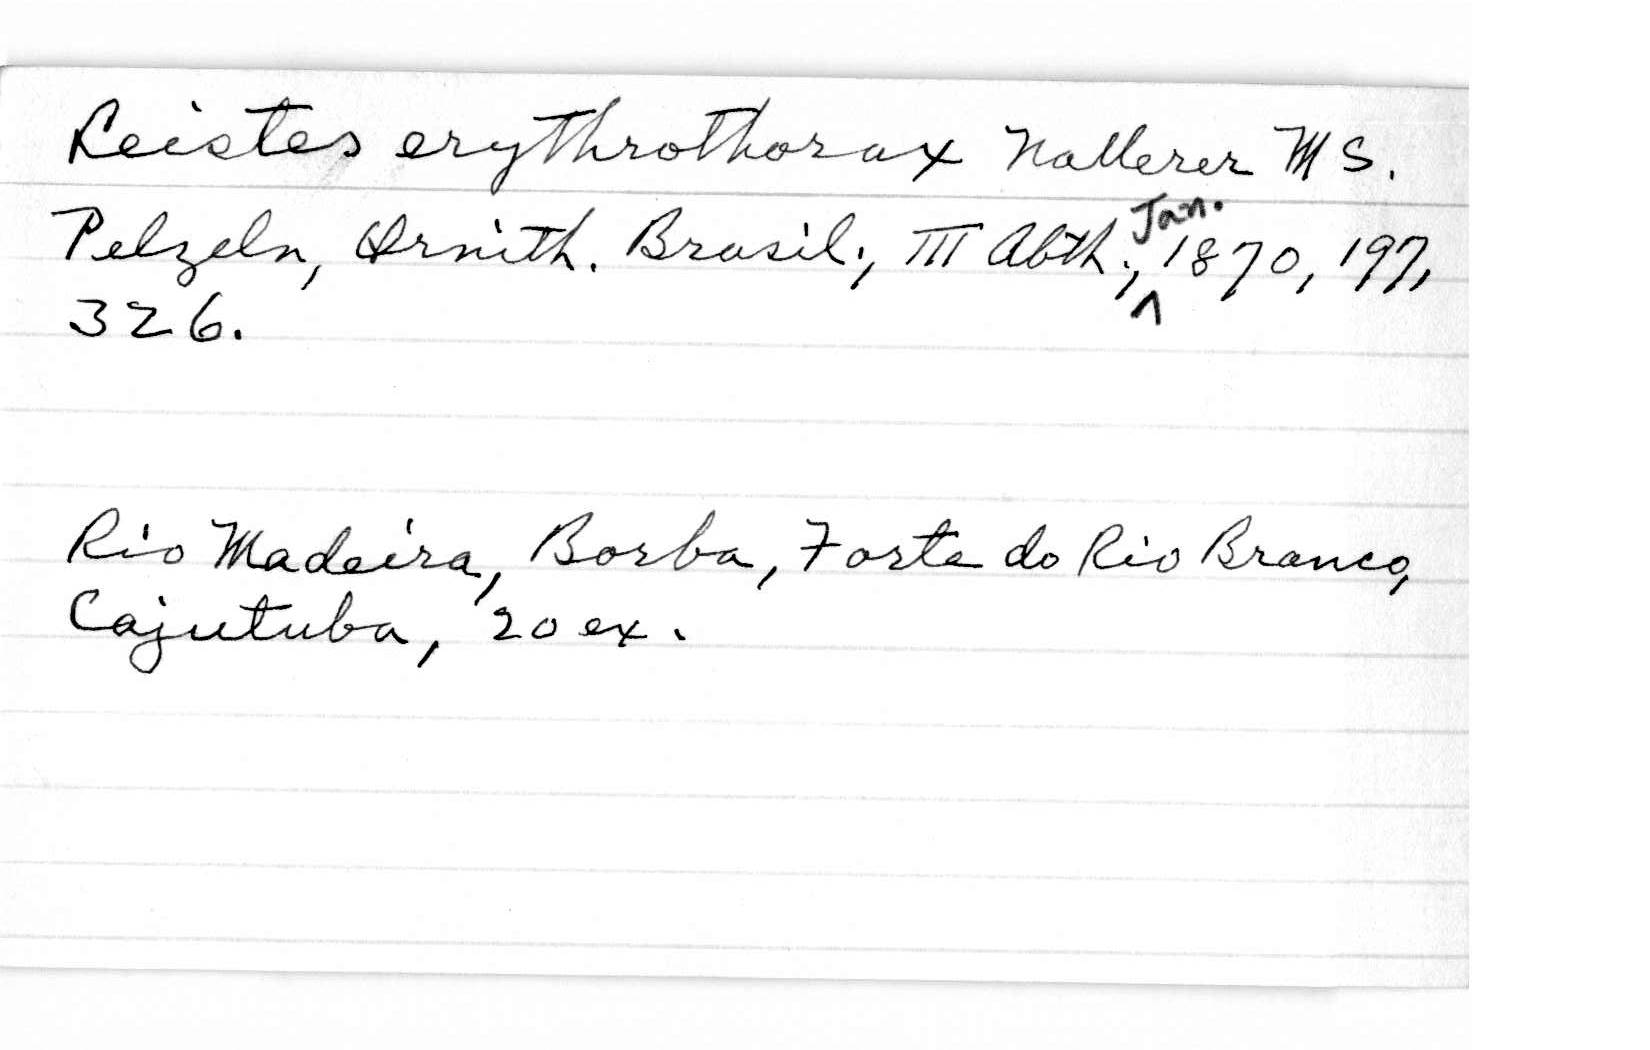 Leistes erythrothorax Natterer MS.
Pelzeln, Ornith. Brasil., III Abth., Jan. 1870, 197,
326.
Rio Madeira, Borba, Forte do Rio Branco,
Cajutuba, 20 ex.